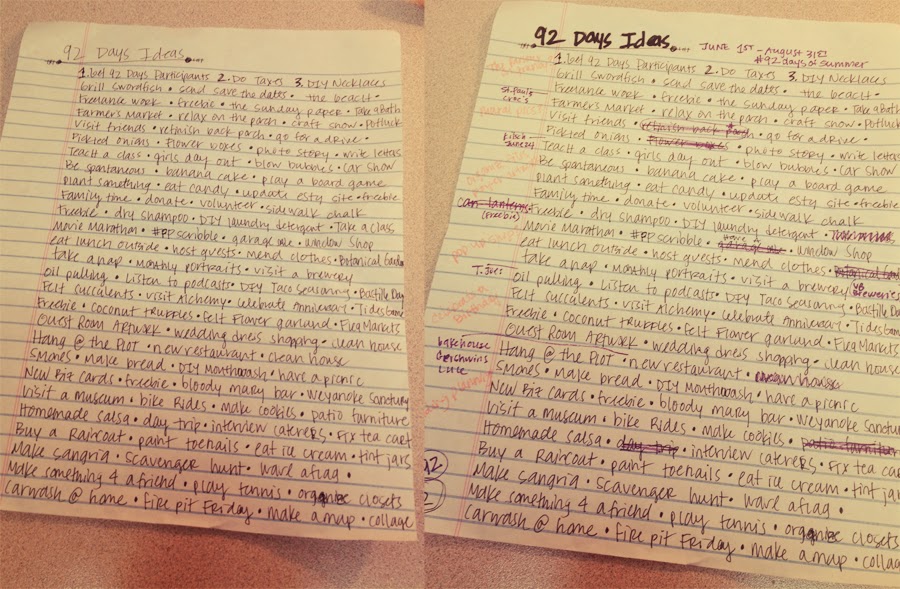 92 Days Ideas
1. Get 92 Days Participants 2. Do Taxes 3. DIY Necklaces
Grill Swordfish • send save the dates • the beach •
Freelance work • freebie • the sunday paper • Take a Bath
Farmers Market • relax on the porch • craft show • Potluck
Visit friends • refinish back porch • go for a drive •
Pickled onions • flower boxes • photo story • write letters
Teach a class • girls day out • blow bubbles • car show
Be spontaneous • banana cake • play a board game
Plant something • eat candy • update esty site • freebie
Family time • donate • volunteer • sidewalk chalk
Freebie • dry shampoo • DIY laundry detergent • Take a class
Movie Marathon • #PP scribble • garage sale • window shop
eat lunch outside • host guests • mend clothes • Botanical Garden
take a nap • monthly portraits • visit a brewery
Oil pulling • Listen to podcasts • DIY Taco Seasoning • Bastille Day
Felt Succulents • visit Alchemy • Celebrate Anniversary • Tides Game
Freebie • Coconut truffles • Felt Flower garland • Flea Markets
Guest Room Artwork • wedding dress shopping • clean house
Hang @ the PLOT • new restaurant • clean house
Smores • make bread • DIY Mouthwash • have a picnic
New Biz Cards • freebie • bloody mary bar • weyanoke Sanctuary
Visit a Museum • bike Rides • make cookies • patio furniture
Homemade salsa • day trip • interview caterers • Fix tea cart
Buy a Raincoat • paint toenails • eat ice cream • tint jars
Make sangria • scavenger hunt • wave a flag •
Make something 4 a friend • play tennis • organize closets
Carwash @ home • Fire pit Friday • make a map • collage
92 Days Ideas
JUNE 1ST - August 31st
#92 days of summer
1. Get 92 Days Participants 2. Do Taxes 3. DIY Necklaces
Grill Swordfish • send save the dates • the beach •
Freelance work • freebie • the sunday paper • Take a Bath
St. Pauls
Farmers Market • relax on the porch • craft show • Potluck
Visit friends • refinish back porch • go for a drive •
Pickled onions • Flower boxes • photo story • write letters
June 24
Teach a class • girls day out • blow bubbles • car show
Be spontaneous • banana cake • play a board game
Plant something • eat candy • update esty site • freebie
Family time • donate • volunteer • sidewalk chalk
can lanterns
(freebie)
Freebie • dry shampoo • DIY laundry detergent •
Movie Marathon • #PP scribble • garage sale • window shop
eat lunch outside • host guests • mend clothes • Botanical Gard
take a nap • monthly portraits • visit a brewery
T. Joes
VB
Breweries
Oil pulling • Listen to podcasts • DIY Taco Seasoning • Bastille Da
Felt Succulents • visit Alchemy • Celebrate Anniversary • Tides Game
Freebie • Coconut truffles • Felt Flower garland • Flea Markets
Guest Room Artwork • wedding dress shopping • clean house
bakehouse
Gershwins
Luce
Hang @ the PLOT • new restaurant • clean house
Smores • make bread • DIY Mouthwash • have a picnic
New Biz Cards • freebie • bloody mary bar • weyanoke Sanctu
Visit a Museum • bike Rides • make cookies • patio furnitur
Homemade salsa • day trip • interview caterers • Fix tea car
Buy a Raincoat • paint toenails • eat ice cream • tint jar
92
Make sangria • scavenger hunt • wave a flag •
Make something 4 a friend • play tennis • organize closets
Carwash @ home • Fire pit Friday • make a map • collag